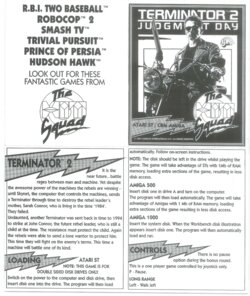 R.B.I. TWO BASEBALL™
ROBOCOP™ 2
SMASH TV™
TRIVIAL PURSUIT™
PRINCE OF PERSIA™
HUDSON HAWK™
LOOK OUT FOR THESE
FANTASTIC GAMES FROM
The
Hit
Squad
TERMINATOR 2
JUDGMENT DAY
ATARI ST
TERMINATOR 2
It is the
near future...battle
rages between man and machine. Yet despite
the awesome power of the machines the rebels are winning
until Skynet, the computer that controls the machines, sends
a Terminator through time to destroy the rebel leader's
mother, Sarah Connor, who is living in the 1984!
They failed.
Undaunted, another Terminator was sent back in time to 1994
to strike at John Connor, the future rebel leader, who is still a
child at the time. The resistance must protect the child. Again
the rebels were able to send a lone warrior to protect him.
This time they will fight on the enemy's terms. This time a
machine will battle one of its kind.
LOADING
ATARI ST
NOTE: THIS GAME IS FOR
DOUBLE SIDED DISK DRIVES ONLY.
Switch on the power to the computer and disk drive, then
insert disk one into the drive. The program will then load
automatically. Follow on-screen instructions.
NOTE: The disk should be left in the drive whilst playing the
game. The game will take advantage of STs with 1mb of RAM
memory, loading extra sections of the game, resulting in less
disk access.
AMIGA 500
Insert disk one in drive A and turn on the computer.
The program will then load automatically. The game will take
advantage of Amigas with 1 mb of RAM memory, loading
extra sections of the game resulting in less disk access.
AMIGA 1000
Insert the system disk. When the Workbench disk illustration
appears insert disk one. The program will then load automatically
load and run.
CONTROLS
There is no pause
option during the bonus round.
This is a one player game controlled by joystick only.
P - Pause.
LONG RANGE
Left - Walk left